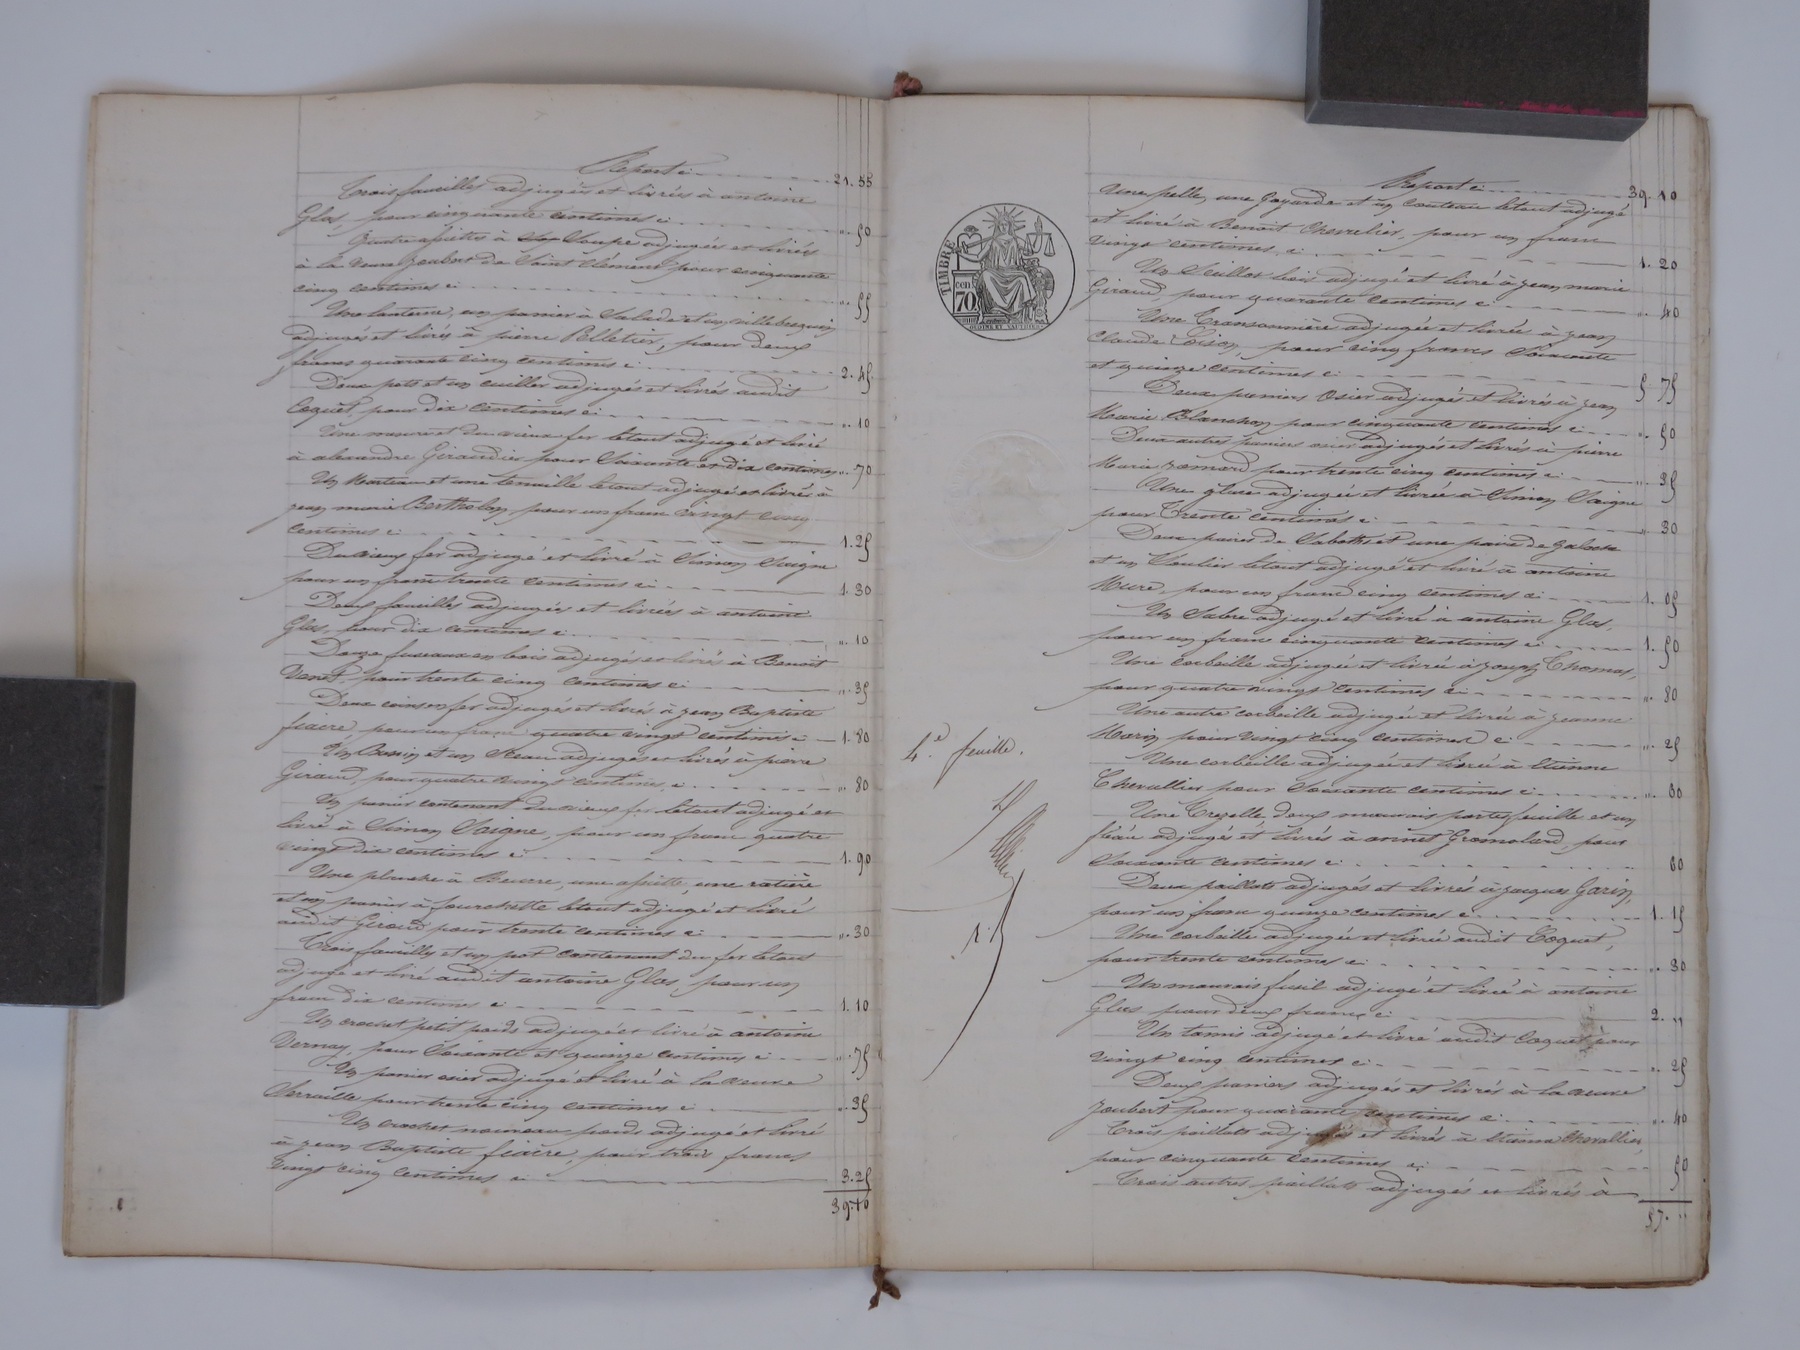 Report ci 21.55
Trois faucilles adjugés et livrés à antoine
Glas, pour cinquante centimes ci ". 50
Quatre assiettes à Soupe adjugés et livrés
à la veuve Joubert de Saint Clément pour cinquante
cinq centimes ci ". 55
Une lanterne, un panier à Salade et un villebrequin
adjugés et livrés à pierre Pelletier, pour deux
francs quarante cinq centimes ci 2.45
Deux pots et un cuiller adjugés et livrés audit
Coquet, pour dix centimes ci ". 10
Une mesure et du vieux fer letout adjugé et livré
à alexandre Giraudier pour Soixante et dix centimes ". 70
Un Marteau et une tenaille letout adjugé et livrés à
jean marie Bertholon, pour un franc vingt cinq
centimes ci 1.25
Du vieux fer adjugé et livré à Simon Saigne
pour un franc trente centimes ci 1.30
Deux faucilles adjugés et livrés à antoine
Glas, pour dix centimes ci ". 10
Douze fuseaux en bois adjugés et livrés à Benoit
Venet pour trente cinq centimes ci ". 35
Deux coins en fer adjugés et livrés à jean Baptiste
fiacre, pour un franc quatre vingt centimes ci 1.80
Un Bassin et un Seau adjugés et livrés à pierre
Giraud, pour quatre vingt centimes ci ". 80
Un panier contenant du vieux fer letout adjugé et
livré à Simon Saigne, pour un franc quatre
vingt dix centimes ci 1.90
Une planche à Beurre, une assiette, une ratière
et un panier à fourchette letout adjugé et livré
audit Giraud pour trente centimes ci ". 30
Trois faucilles et un pot contenant du fer letout
adjugé et livré audit antoine Glas, pour un
franc dix centimes ci 1.10
Un crochet petit poids adjugé et livré à antoine
Vernay, pour Soixante et quinze centimes ci ". 75
Un panier osier adjugé et livré à la veuve
Serraille pour trente cinq centimes ci ". 35
Un crochet nouveau poids adjugé et livré
à jean Baptiste fiacre, pour trois francs
vingt cinq centimes ci 3.25
39.10
Report ci 39.10
Une pelle, une Goyarde et un couteau letout adjugé
et livré à Benoit Chevalier, pour un franc
vingt centimes ci 1.20
TIMBRE
cen
70.
OUDINÉ ET VAUTHIER
Un Seillot bois adjugé et livré à jean marie
Giraud, pour quarante centimes ci ". 40
Une Transonnière adjugée et livrée à jean
Claude Loison, pour cinq francs Soixante
et quinze centimes ci 5 75
Deux paniers Osier adjugés et livrés à jean
Marie Blanchon pour cinquante centimes ci ". 50
Deux autres paniers osier adjugés et livrés à pierre
Marie pour trente cinq centimes ci ". 35
Une adjugée et livrée à Simon Saigne
pour Trente centimes ci ". 30
Deux paires de Sabots et une paire de galoche
et un Soulier letout adjugé et livré à antoine
Mure, pour un franc cinq centimes ci 1.05
Un Sabre adjugé et livré à antoine Glas,
pour un franc cinquante centimes ci 1.50
Une corbeille adjugée et livrée à joseph Thomas,
pour quatre vingt centimes ci ". 80
Une autre corbeille adjugée et livrée à jeanne
Morin pour vingt cinq centimes ci ". 25
4.e feuille.
Une corbeille adjugée et livrée à Etienne
Chevallier pour Soixante centimes ci ". 60
Une Trezelle, deux mauvais portefeuille et un
fléau adjugés et livrés à Gromolard, pour
Soixante centimes ci 60
Deux paillats adjugés et livrés à jacques Garin,
pour un franc quinze centimes ci 1.15
Une corbeille adjugée et livrée audit Coquet,
pour trente centimes ci ". 30
Un mauvais fusil adjugé et livré à antoine
Glas pour deux francs ci 2. "
Un tamis adjugé et livré audit Coquet pour
vingt cinq centimes ci ". 25
Deux paniers adjugés et livrés à la veuve
Joubert pour quarante centimes ci ". 40
Trois paillats adjugés et livrés à Etienne Chevallier,
pour cinquante centimes ci 50
Trois autres paillats adjugés et livrés à
57. "